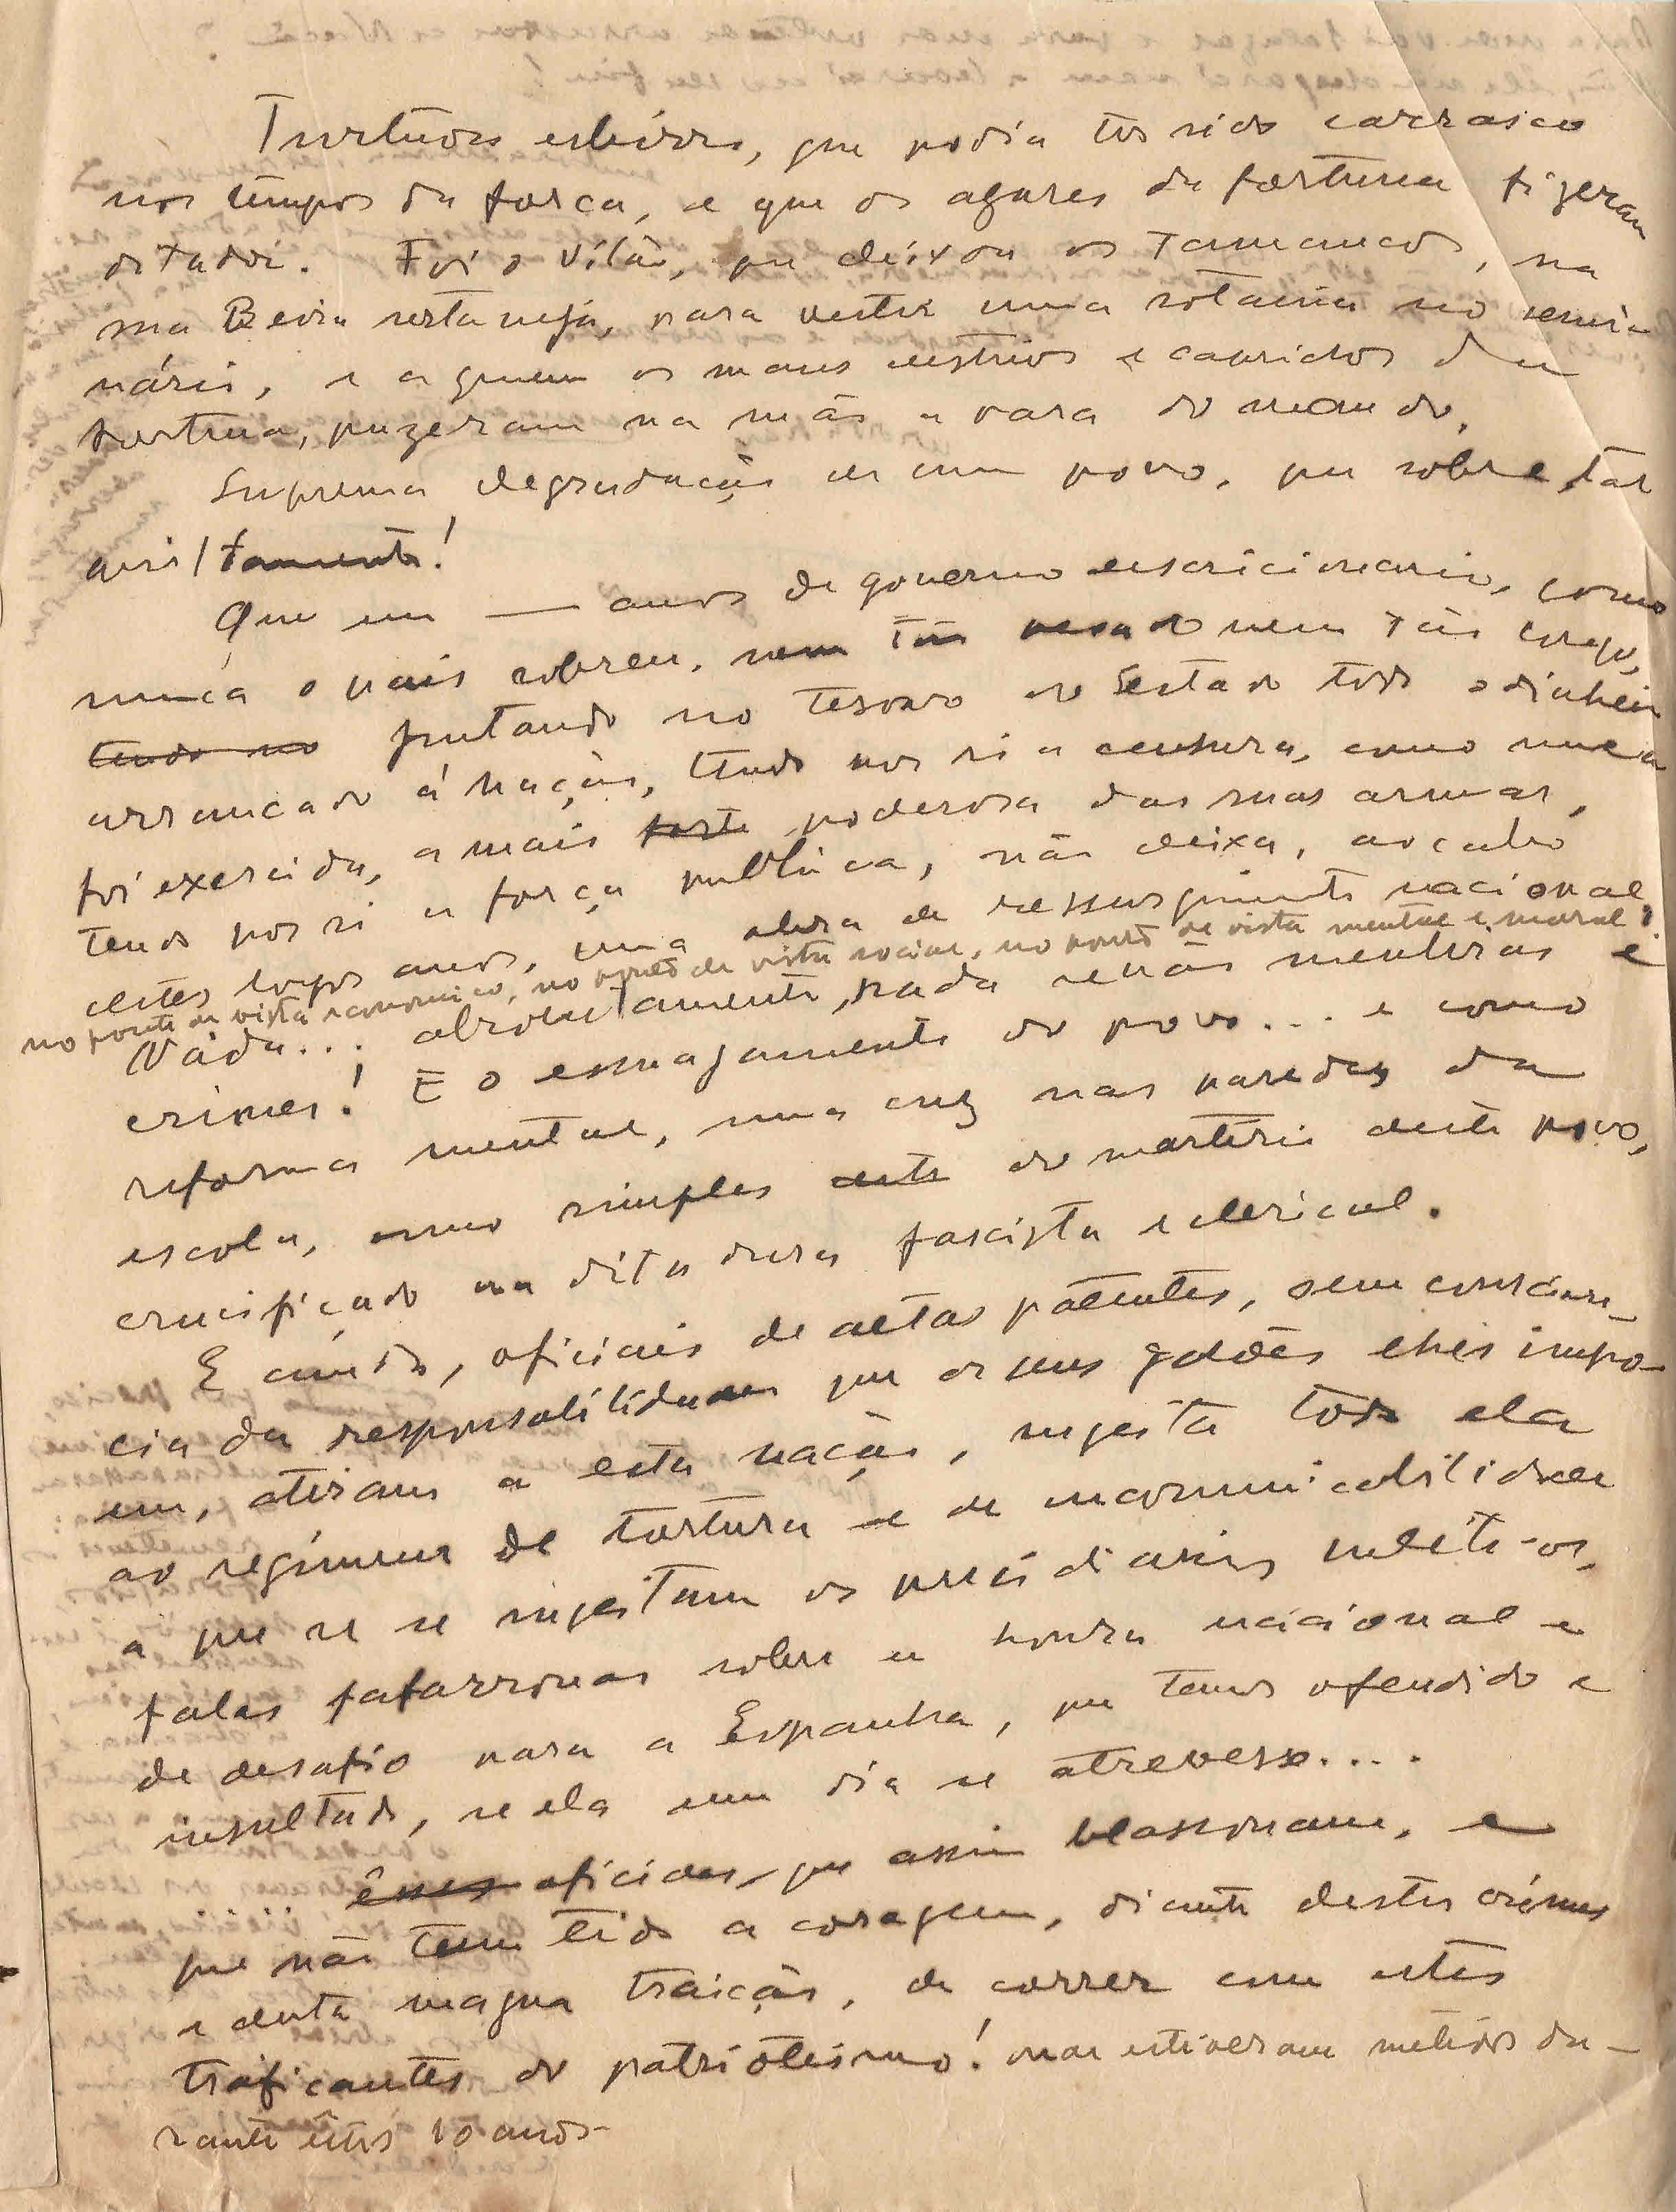 que podia ter sido carrasco
nos tempos da forca, e que os azares da fortuna fizeram
ditador. Foi o vilão, que deixou os tamancos, na
sua Beira sertaneja, para vestir uma sotaina no semi-
nário, e a quem os maus destinos e caprichos da
fortuna, puzeram na mão a vara do mando.
Suprema degradação de um povo, que sobre tal
Que em — anos de governo discricionario, como
nunca o país sofreu, nem tão pesado nem tão longo,
tendo no juntando no tesouro do Estado todo o dinheiro
arrancado á nação, tendo por si a censura, como nunca
foi exercida, a mais forte poderosa das suas armas,
tendo por si a força publica, não deixa, ao cabo
destes longos anos, uma obra de ressurgimento nacional,
no ponto de vista economico, no ponto de vista social, no ponto de vista mental e moral!
Nada... absolutamente nada senão mentiras e
crimes! E o esmagamento do povo... e como
reforma mental, uma cruz nas paredes da
escola, como simples do martirio deste povo,
crucificado na ditadura fascista e clerical.
E ainda, oficiais de altas patentes, sem consciên-
cia da responsabilidade que os seus galões lhes impo-
em, atiram a esta nação, sujeita toda ela
ao regímen de tortura e de incomunicabilidade
a que se sujeitam os presidiarios
falas fafarronas sobre a honra nacional e
de desafio para a Espanha, que temos ofendido e
insultado, se ela um dia se atrevesse....
êsses oficiais, que assim blasonam, e
que não tem tido a coragem, diante destes crimes
e desta magna traição, de correr com estes
traficantes do patriotismo! onde estiveram metidos du-
rante êstes 10 anos